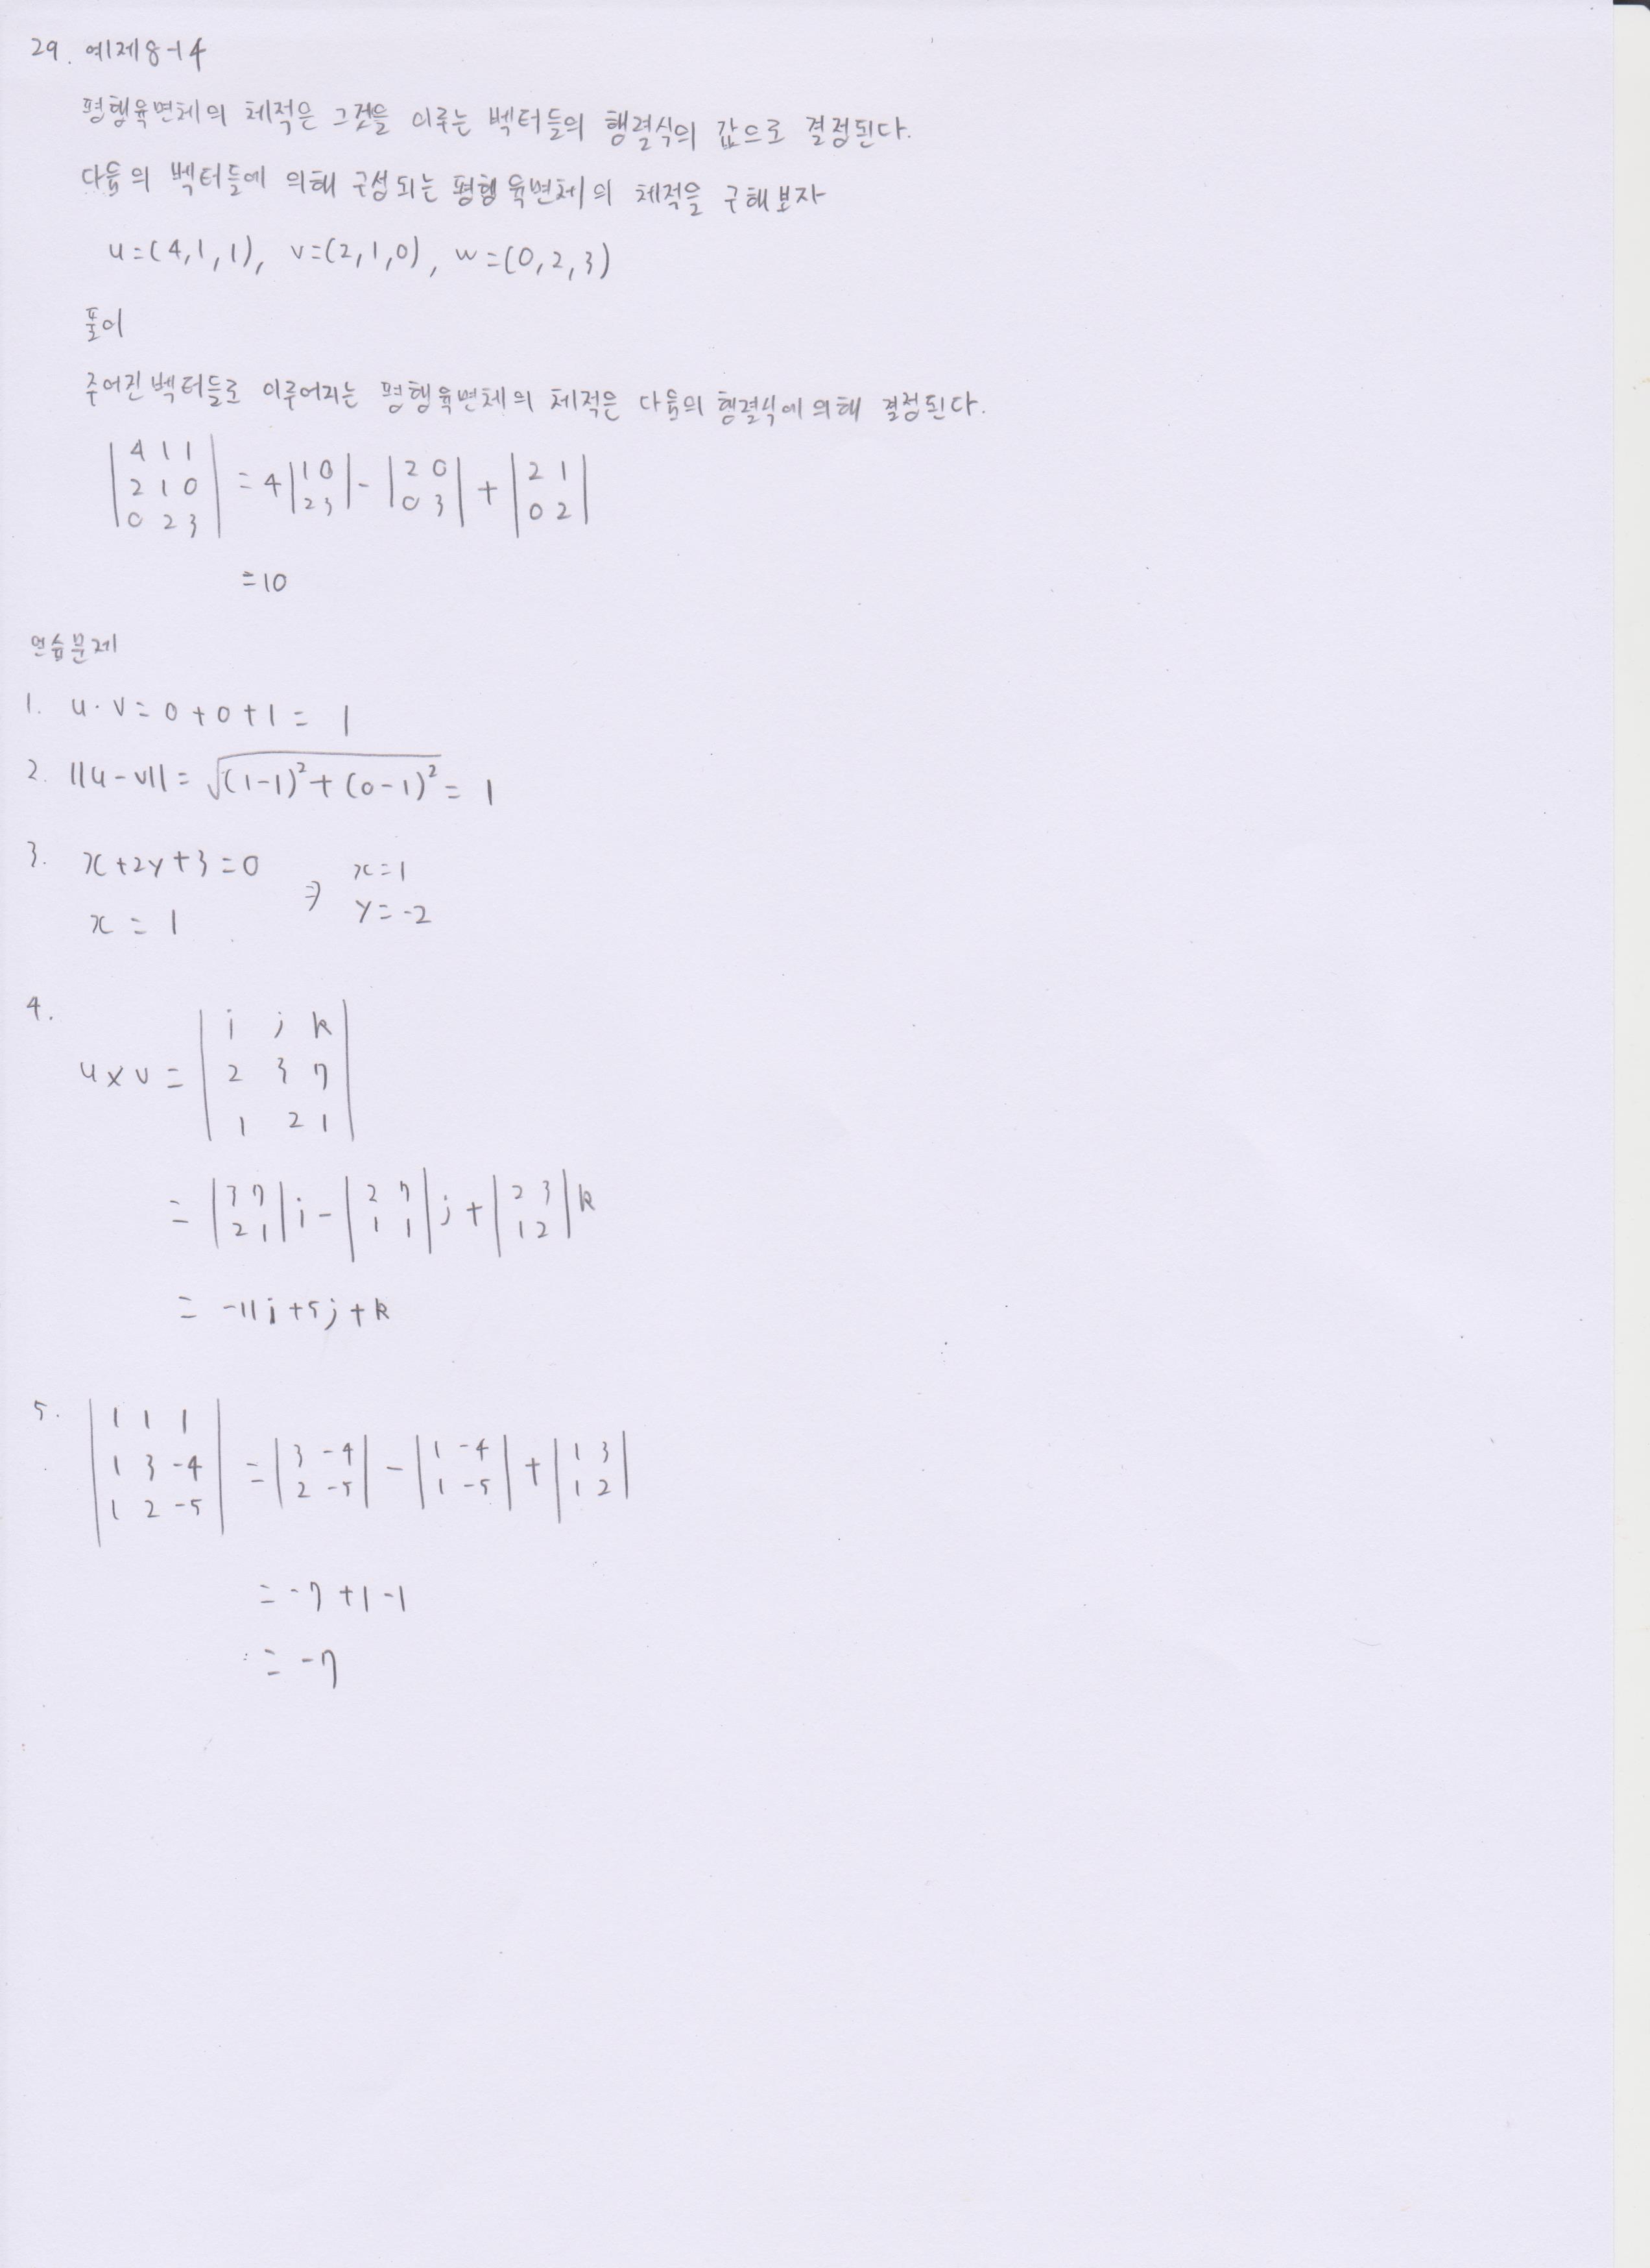 29. 예제 8-14
평행육면체의 체적은 그것을 이루는 벡터들의 행렬식의 값으로 결정된다.
다음의 벡터들에 의해 구성되는 평행육면체의 체적을 구해보자
u=(4,1,1), v=(2,1,0), w=(0,2,3)
풀이
주어진 벡터들로 이루어지는 평행육면체의 체적은 다음의 행렬식에 의해 결정된다.
|4 1 1|
|2 1 0| = 4|1 0| - |2 0| + |2 1|
|0 2 3| |2 3| |0 3| |0 2|
=10
연습문제
1. u·v=0+0+1= 1
2. ||u-v||= √(1-1)²+(0-1)² = 1
3. x+2y+3=0 ⇒ x=1
x = 1 y=-2
4.
|i j k|
u×v= |2 3 7|
|1 2 1|
= |3 7|i - |2 7|j + |2 3|k
|2 1| |1 1| |1 2|
= -11i+5j+k
5. |1 1 1|
|1 3 -4| = |3 -4| - |1 -4| + |1 3|
|1 2 -5| |2 -5| |1 -5| |1 2|
= -7+1-1
= -7